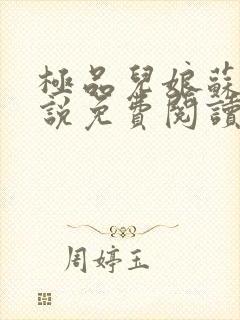 極品兒娘蘇
說免費閱讀
周婷玉